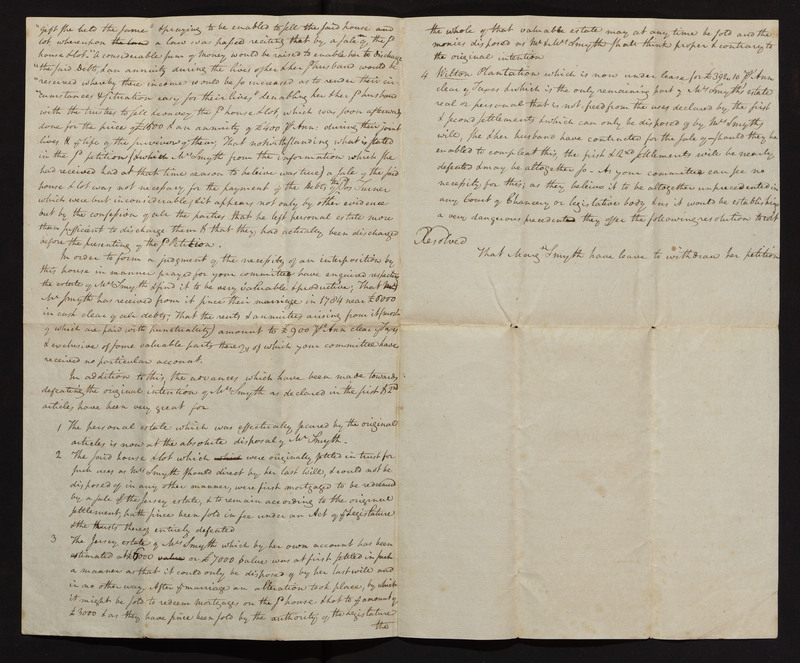 "gift she lets the same" & praying to be enabled to sell the said house and
lot whereupon the land a law was passed reciting that by a sale of the sd
house & lot "a considerable sum of money would be raised to enable her to discharge
"the said Debts, & an annuity during the lives of her & her sd husband would be
"reserved whereby their income would be so increased as to render their cir-
"cumstances & situation easy for their lives" & enabling her & her sd husband
with the trustees to sell & convey the sd house & lot, which was soon afterwards
done for the price of £1600 & an annuity of £400 Pr Ann: during their joint
lives & the life of the survivor of them, That notwithstanding what is stated
in the sd petition (& which Mrs Smyth from the information which she
had received had at that time reason to beleive was true) a sale of the said
house & lot was not necessary for the payment of the Debts of the Jos Turner
which were but inconsiderable, (it appears not only by other evidence
but by the confession of all the parties that he left personal estate more
than sufficient to discharge them & that they had actually been discharged
before the presenting of the sd Petition.
In order to form a judgment of the necessity of an interposition by
this house in manner prayed for your committee have enquired respecting
the estate of Mrs Smyth & find it to be very valuable & productive; That
Mr Smyth has received from it since their marriage in 1784 near £8000
in cash clear of all debts; That the rents & annuities arising from it (most
of which are paid with punctuality) amount to £900 Pr Ann clear of Taxes
& exclusive of some valuable parts thereof of which your committee have
received no particular account.
In addition to this, the advances which have been made towards
defeating the original intention of Mrs Smyth as declared in the first & 2nd
articles have been very great for
1 The personal estate which was effectually secured by the original
articles is now at the absolute disposal of Mr Smyth.
2 The said house & lot which were originally settled in trust for
such uses as Mrs Smyth should direct by her last Will, & could not be
disposed of in any other manner, were first mortgaged to be redeemed
by a sale of the Jersey estate, & to remain according to the original
settlement, hath since been sold in fee under an Act of ye Legislature
& the trusts thereof entirely defeated
3 The Jersey estate of Mrs Smyth which by her own account has been
estimated at £6000 value or £7000 value was at first settled in such
a manner as that it could only be disposed of by her last will and
in no other way. After ye marriage an alteration took place, by which
it might be sold to redeem mortgages on the sd house & lot to ye amount of
£3000 & as they have since been sold by the authority of the Legislature
the
the whole of that valuable estate may at any time be sold and the
monies disposed as Mr & Mrs Smyth shall think proper & contrary to
the original intention
4 Wilton Plantation which is now under lease for £392.10 Pr Ann
clear of Taxes & which is the only remaining part of Mrs Smyth's estate
real or personal that is not freed from the uses declared by the first
& second settlements & which can only be disposed of by Mrs Smyth's
will, she & her husband have contracted for the sale of & should they be
enabled to compleat this, the first & 2nd settlements will be nearly
defeated & may be altogether so. As your committee can see no
necessity for this, as they believe it to be altogether unprecedented in
any Court of Chancery or legislative body & as it would be establishing
a very dangerous precedent they offer the following resolution to wit
Resolved
That Margt Smyth have leave to withdraw her petition